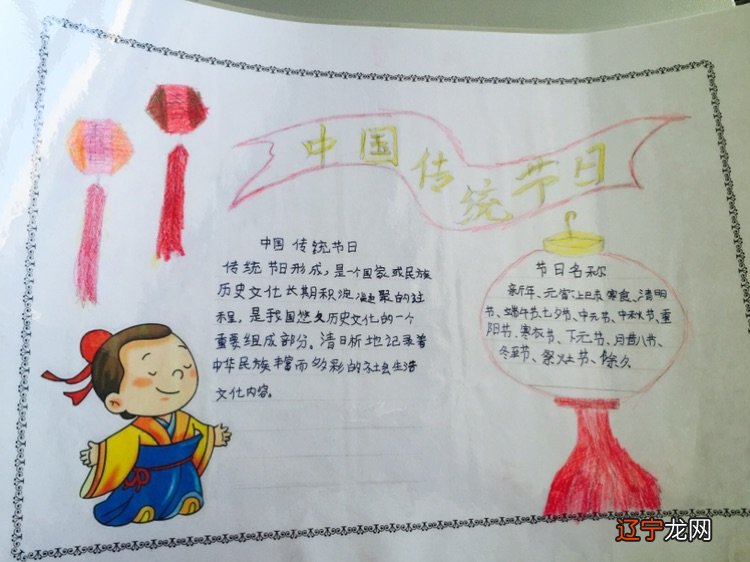 中国传统节日
中国 传统节日
传统节日形成，是一个国家或民族
历史文化长期积淀凝聚的过
程，是我国悠久历史文化的一个
重要组成部分。清日析地记录着
中华民族丰富而多彩的社会生活
文化内容。
节日名称
新年、元宵、上巳、寒食、清明
节、端午节、七夕节、中元节、中秋节、重
阳节、寒衣节、下元节、月昔八节、
冬至节、祭灶节、除夕。
辽宁龙网